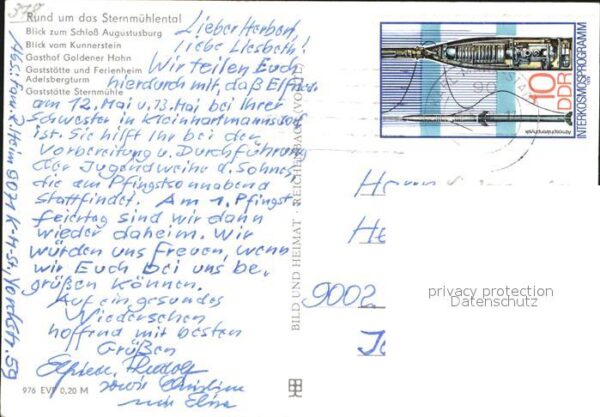 Rund um das Sternmühlental
Blick zum Schloß Augustusburg
Blick vom Kunnerstein
Gasthof Goldener Hahn
Gaststätte und Ferienheim
Adelsbergturm
Gaststätte Sternmühle
Lieber Herbert,
liebe Liesbeth!
Wir teilen Euch
hierdurch mit, daß Elfriede
am 12. Mai u. 13. Mai bei ihrer
Schwester in Kleinhartmannsdorf
ist. Sie hilft ihr bei der
Vorbereitung u. Durchführung
der Jugendweihe d. Sohnes,
die am Pfingstsonnabend
stattfindet. Am 1. Pfingst-
feiertag sind wir dann
wieder daheim. Wir
würden uns freuen, wenn
wir Euch bei uns be-
grüßen können.
Auf ein gesundes
Wiedersehen
hoffend mit besten
Grüßen
Elfriede, Rudolf
sowie Christine
976 EVP 0,20 M
BILD UND HEIMAT · REICHENBACH (VOGTL)
10
DDR
INTERKOSMOSPROGRAMM
Atmosphärenphysik
9002
privacy protection
Datenschutz